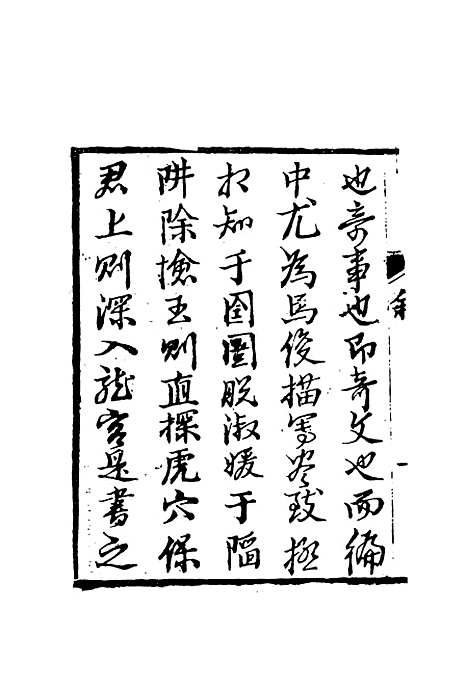 也奇事也即奇文也而编
中尤為馬俊描寫尽致拯
相知于囹圄脱淑媛于陷
阱除撿玉则直探虎穴保
君上则深入龍宮是書之